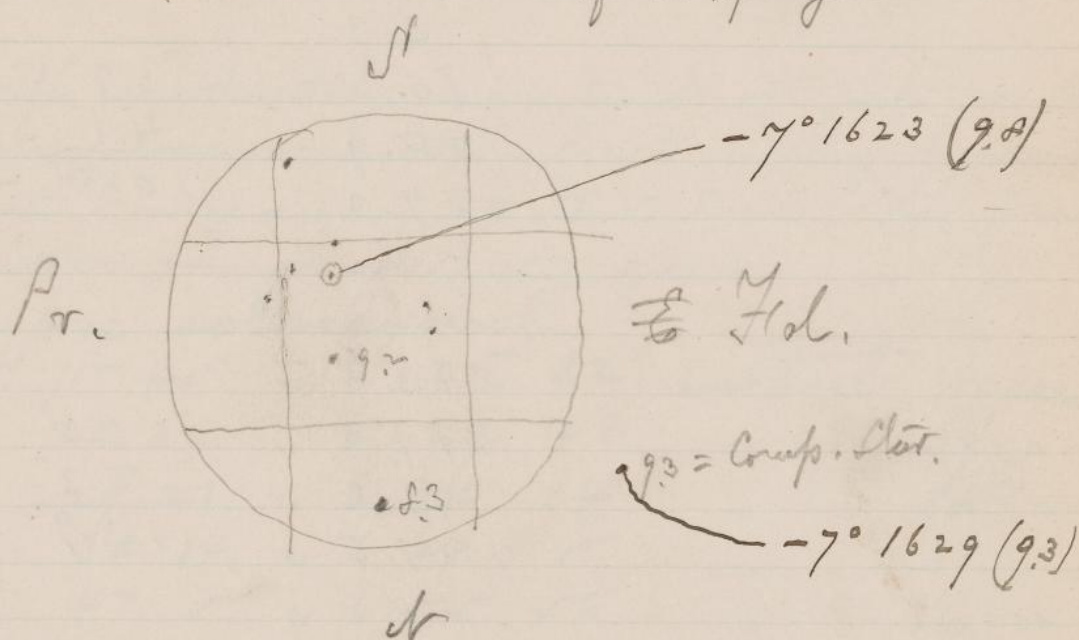 N
-7° 1623 (9.8)
Pr.
Fol.
9.2
9.3 = Comp. Star.
8.3
-7° 1629 (9.3)